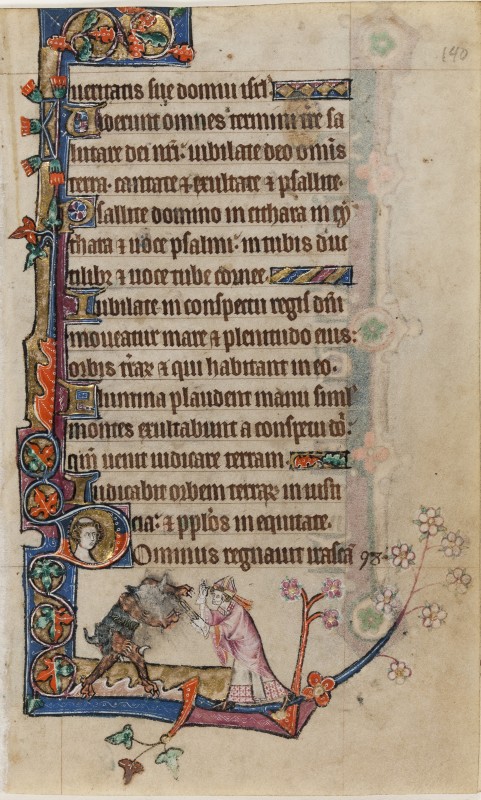 140
ueritatis sue domui isrl
Uiderunt omnes termini t̃re sa
lutare dei nr̃i: iubilate deo om̃is
terra. cantate ⁊ exultate ⁊ psallite.
Psallite domino in cithara in cy
thara ⁊ uoce psalmi: in tubis duc
tilibꝫ ⁊ uoce tube cornee.
Iubilate in conspectu regis dñi
moueatur mare ⁊ plenitudo eius:
orbis t̃raꝝ ⁊ qui habitant in eo.
Flumina plaudent manu simul
montes exultabunt a conspectu dñi:
qm̃ uenit iudicare terram.
Iudicabit orbem terraꝝ in iusti
cia: ⁊ pplõs in equitate.
Dominus regnauit irascãt 98.